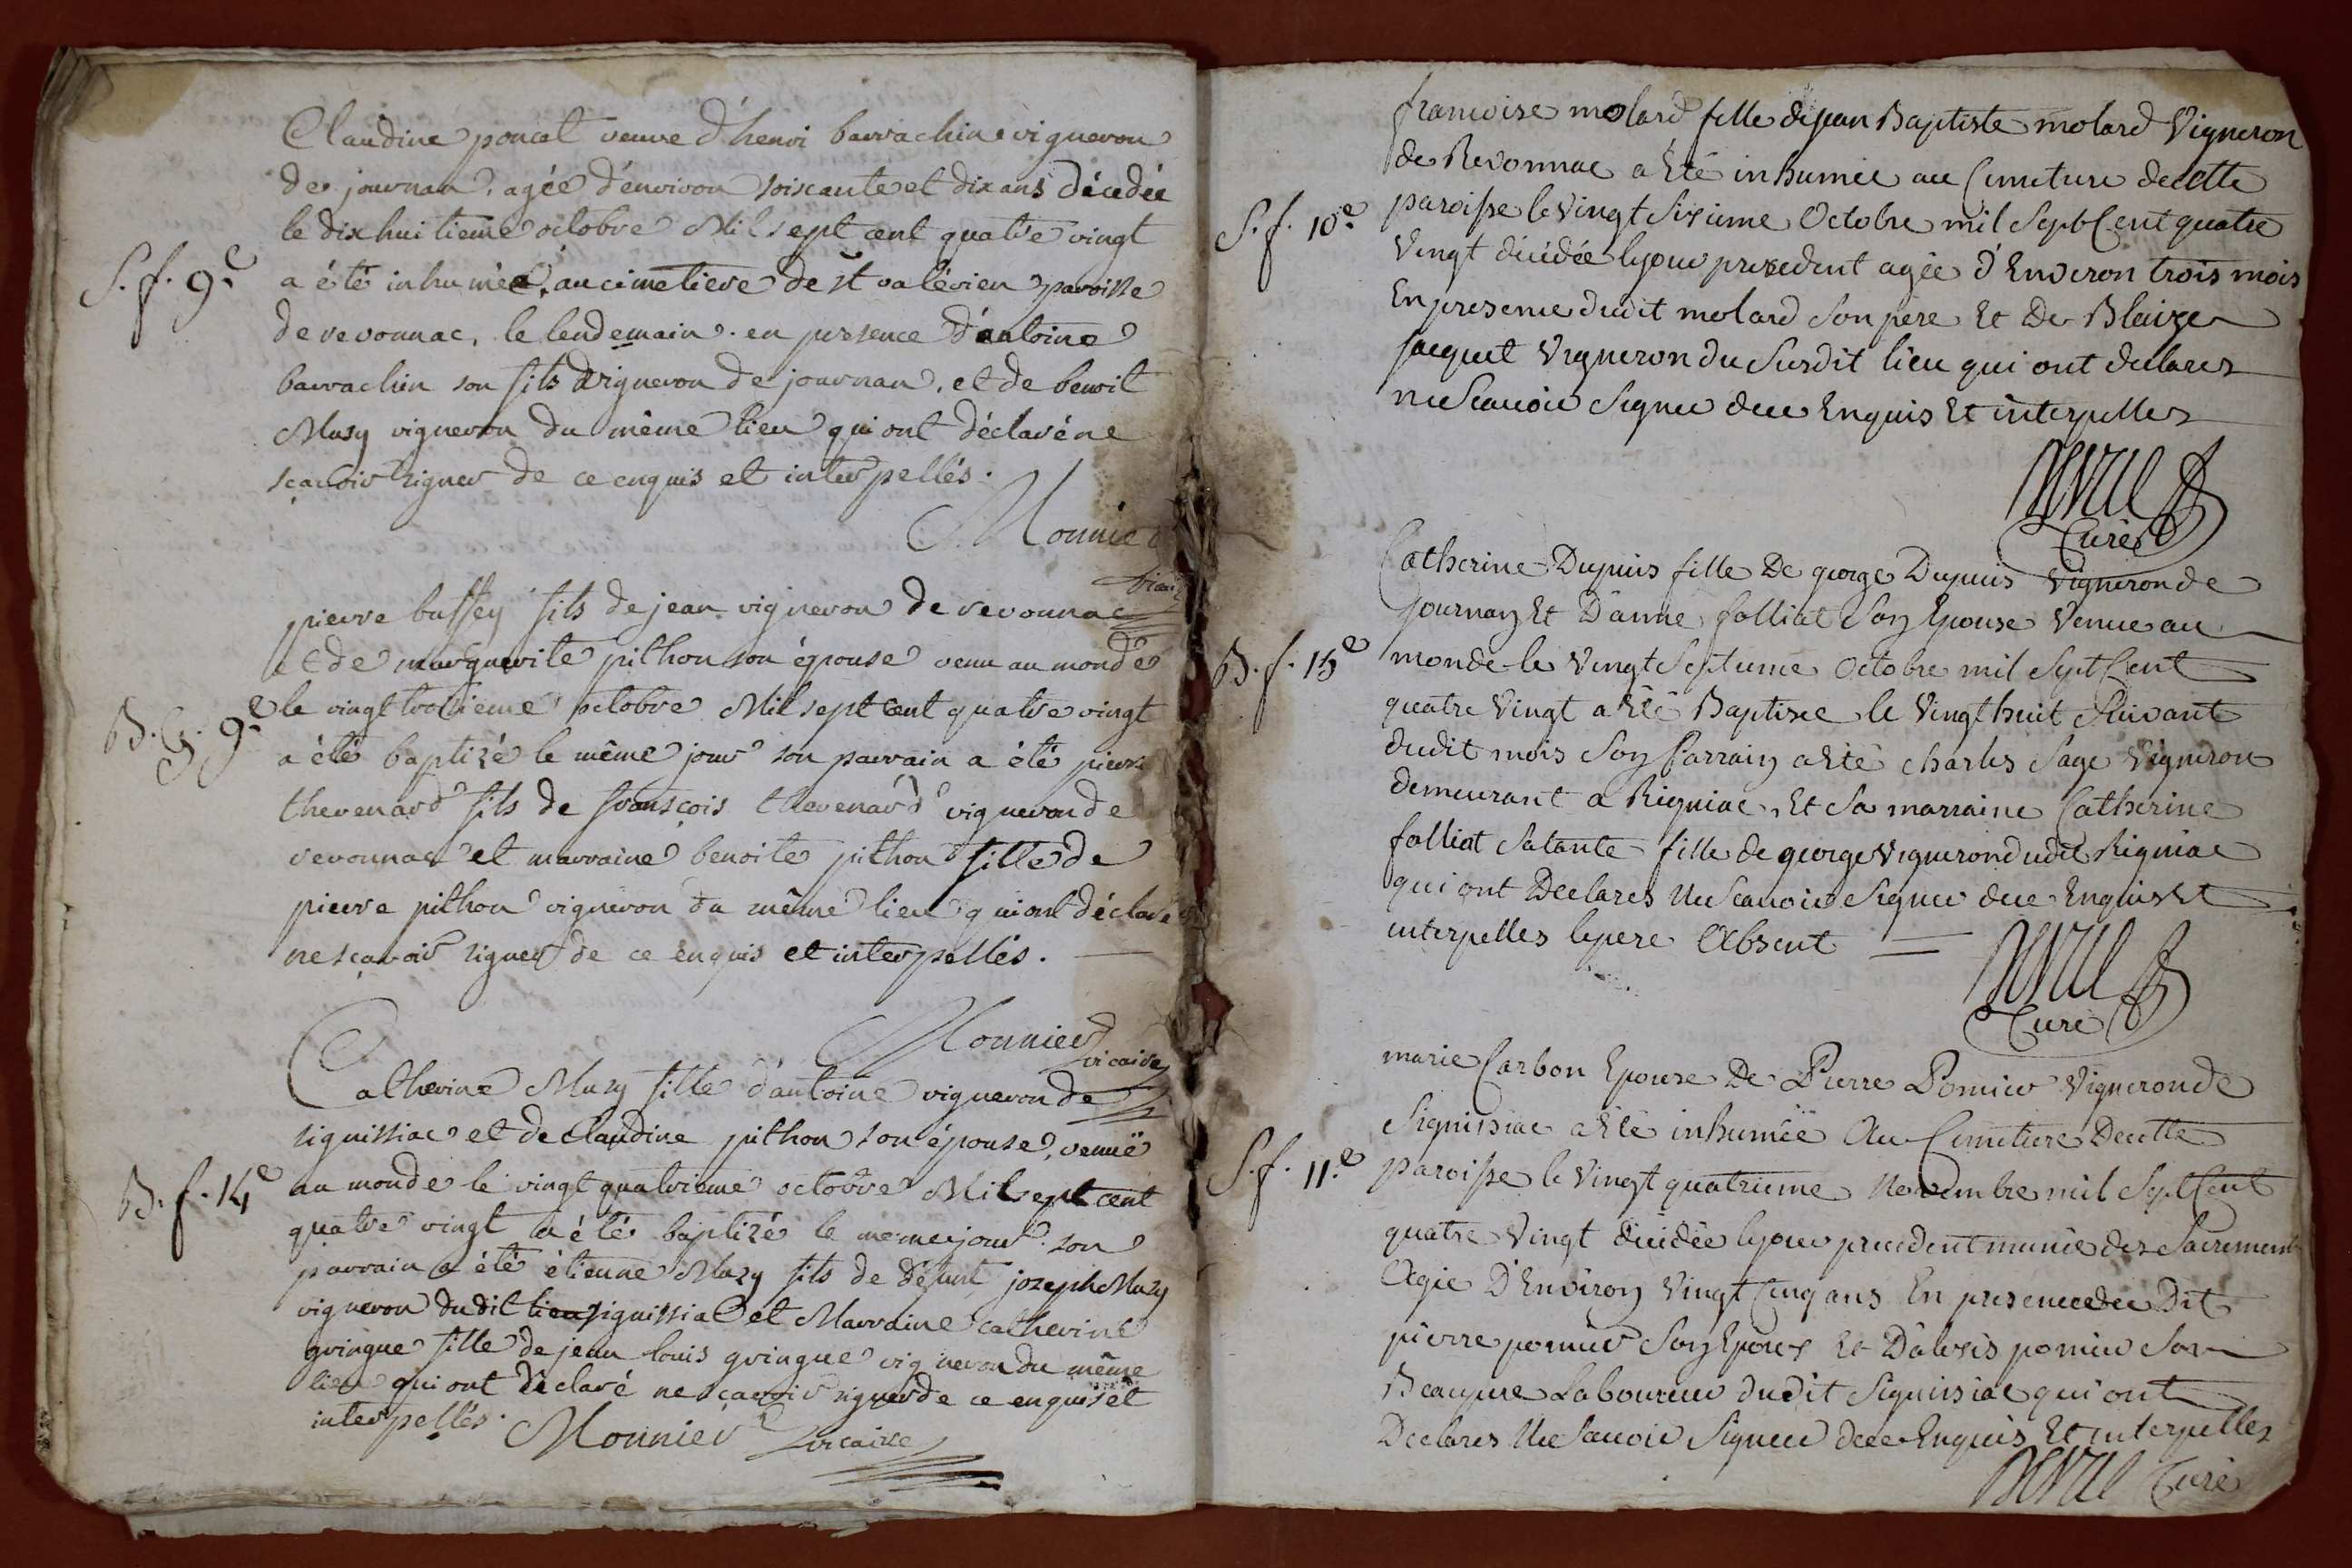 Claudine poncet veuve d'henri barrachin vigneron
de journan, agée d'environ soiscante et dix ans décedée
le dix huitieme octobre Mil sept cent quatre vingt
S. f. 9.e
a été inhumée, au cimetiere de st valérien paroisse
de revonnac, le lendemain. en presence d'antoine
barrachin son fils vigneron de journan, et de benoit
Musy vigneron du même lieu qui ont déclaré ne
sçavoir signer de ce enquis et interpellés.
Monnier
vicaire
pierre buffey fils de jean vigneron de revonnac
et de marguerite pithon son épouse venu au monde
B. G. 9.e
le vingt troisieme octobre Mil sept cent quatre vingt
a été baptizé le même jour son parrain a été pierre
thevenard fils de franscois thevenard vigneron de
revonnac et marraine benoite pithon fille de
pierre pithon vigneron du même lieu qui ont déclaré
ne sçavoir signer de ce enquis et interpellés.
Monnier
vicaire
Catherine Muzy fille d'antoine vigneron de
signissiac et de claudine pithon son épouse, venuë
B. f. 14.e
au monde le vingt quatrieme octobre Mil sept cent
quatre vingt a été baptizé le meme jour. son
parrain a été étienne Muzy fils de défunt joseph Muzy
vigneron dudit lieu signissiac et Marraine catherine
gringue fille de jean louis gringue vigneron du même
lieu qui ont déclaré ne sçavoir signer de ce enquis et
interpellés. Monnier vicaire
francoise molard fille de jean Baptiste molard Vigneron
de Revonnac a Eté inhumée au Cimetiere de cette
S. f. 10.e
paroisse le Vingt Sixieme Octobre mil Sept Cent quatre
Vingt décédée le jour precedent agée d'Environ trois mois
En presence dudit molard Son pere Et De Blaize
jacquet Vigneron du Susdit lieu qui ont declarez
ne Scavoir Signer de ce Enquis Et interpellez
Curé
Catherine Dupuis fille De george Dupuis Vigneron de
journan Et D'anne folliat Son Epouse Venue au
B. f. 15.e
monde le Vingt Septieme Octobre mil Sept Cent
quatre Vingt a Eté Baptisée le Vingt huit Suivant
dudit mois Son Parrain a Eté charles Sage Vigneron
demeurant a Rigniac, Et Sa marraine Catherine
folliat Sa tante fille de george Vigneron dudit Rigniac
qui ont Declares Ne Scavoir Signer de ce Enquis Et
interpelles le pere Absent
Curé
marie Carbon Epouse De Pierre Pomier Vigneron de
Signissiac a Eté inhumée Au Cimetiere De cette
S. f. 11.e
paroisse le Vingt quatrieme Novembre mil Sept Cent
quatre Vingt décédée le jour precedent munie des Sacrements
Agée D'Environ Vingt Cinq ans En presence du Dit
pierre pomier Son Epoux Et D'alexis pomier Son
Beaupere Laboureur dudit Signissiac qui ont
Declares Ne Scavoir Signer de ce Enquis Et interpellez
Curé